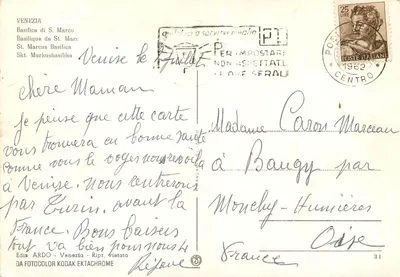 VENEZIA
Basilica di S. Marco
Basilique de St. Marc
St. Marcus Basilica
Skt. Markusbasilika
Venise le Juillet
chère Maman
je pense que cette carte
vous trouvera en bonne santé
comme vous le voyez nous voilà
à Venise. nous rentrerons
par Turin, avant la
France. Bons baisers
tout va bien pour nous 4
Réjane
Ediz. ARDO - Venezia - Ripr. vietata
DA FOTOCOLOR KODAK EKTACHROME
PT
PER IMPOSTARE
NON ASPETTATE
LE ORE SERALI
25
POSTE ITALIANE
POSTE
1962
CENTRO
Madame Caron Marceau
à Baugy par
Monchy-Humières
Oise
France
31